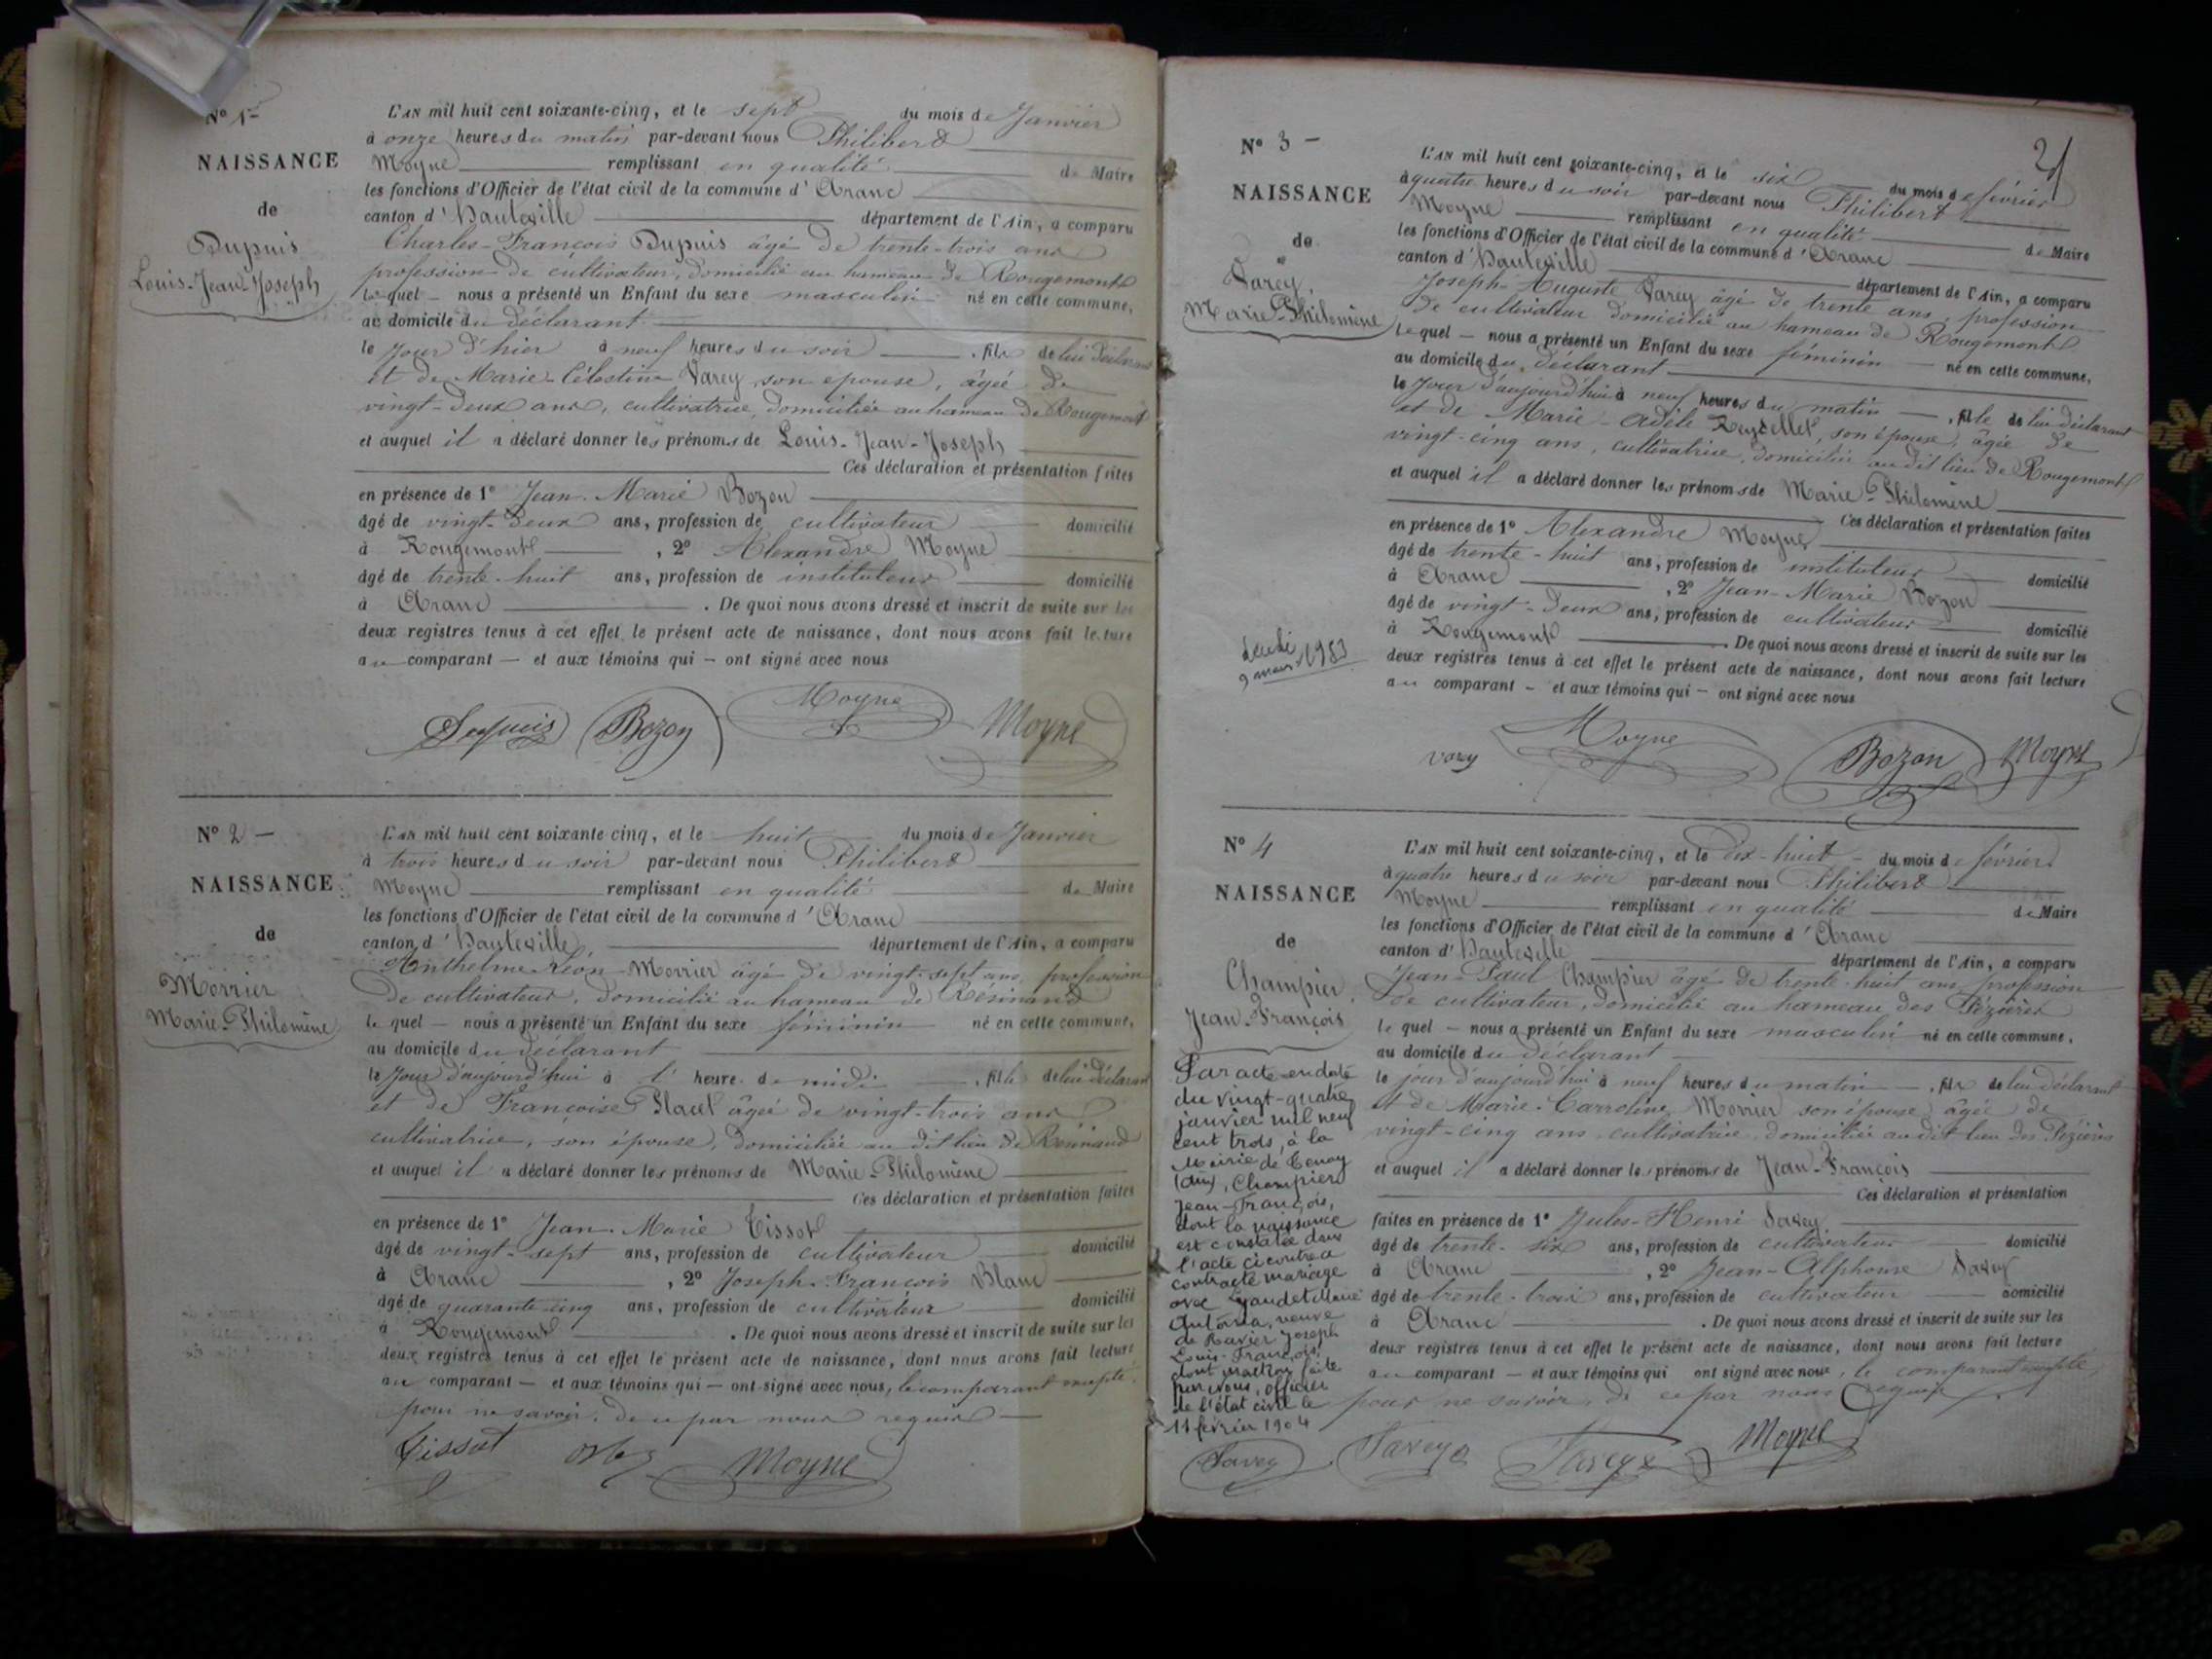 N° 1 -
NAISSANCE
de
Dupuis
Louis-Jean-Joseph
L'AN mil huit cent soixante-cinq, et le sept du mois de Janvier
à onze heures du matin par-devant nous Philibert
Moyne remplissant en qualité de Maire
les fonctions d'Officier de l'état civil de la commune d'Aranc
canton d'Hauteville département de l'Ain, a comparu
Charles-François Dupuis âgé de trente-trois ans
profession de cultivateur, domicilié au hameau de Rougemont
lequel — nous a présenté un Enfant du sexe masculin né en cette commune,
au domicile du déclarant
le jour d'hier à neuf heures du soir , fils de lui déclarant
et de Marie-Célestine Varey son épouse, âgée de
vingt-deux ans, cultivatrice, domiciliée au hameau de Rougemont
et auquel il a déclaré donner les prénoms de Louis-Jean-Joseph
Ces déclaration et présentation faites
en présence de 1° Jean-Marie Bozon
âgé de vingt-deux ans, profession de cultivateur domicilié
à Rougemont , 2° Alexandre Moyne
âgé de trente-huit ans, profession de instituteur domicilié
à Aranc . De quoi nous avons dressé et inscrit de suite sur les
deux registres tenus à cet effet le présent acte de naissance, dont nous avons fait lecture
au comparant — et aux témoins qui — ont signé avec nous
Dupuis Bozon Moyne Moyne
N° 2 -
NAISSANCE
de
Morrier
Marie-Philomène
L'AN mil huit cent soixante-cinq, et le huit du mois de Janvier
à trois heures du soir par-devant nous Philibert
Moyne remplissant en qualité de Maire
les fonctions d'Officier de l'état civil de la commune d'Aranc
canton d'Hauteville département de l'Ain, a comparu
Anthelme-Léon Morrier âgé de vingt-sept ans, profession
de cultivateur, domicilié au hameau de Résinand
lequel — nous a présenté un Enfant du sexe féminin né en cette commune,
au domicile du déclarant
le jour d'aujourd'hui à l'heure de midi , fille de lui déclarant
et de Françoise âgée de vingt-trois ans
cultivatrice, son épouse, domiciliée au dit lieu de Résinand
et auquel il a déclaré donner les prénoms de Marie-Philomène
Ces déclaration et présentation faites
en présence de 1° Jean-Marie Tissot
âgé de vingt-sept ans, profession de cultivateur domicilié
à Aranc , 2° Joseph-François Blanc
âgé de quarante-cinq ans, profession de cultivateur domicilié
à Rougemont . De quoi nous avons dressé et inscrit de suite sur les
deux registres tenus à cet effet le présent acte de naissance, dont nous avons fait lecture
au comparant — et aux témoins qui — ont signé avec nous, le comparant excepté,
pour ne savoir, de ce par nous requis —
Tissot Moyne
21
N° 3 -
NAISSANCE
de
Varey,
Marie-Philomène
décédée
9 mars 1953
L'AN mil huit cent soixante-cinq, et le six du mois de février
à quatre heures du soir par-devant nous Philibert
Moyne remplissant en qualité de Maire
les fonctions d'Officier de l'état civil de la commune d'Aranc
canton d'Hauteville département de l'Ain, a comparu
Joseph-Auguste Varey âgé de trente ans, profession
de cultivateur domicilié au hameau de Rougemont
lequel — nous a présenté un Enfant du sexe féminin né en cette commune,
au domicile du déclarant
le jour d'aujourd'hui à neuf heures du matin , fille de lui déclarant
et de Marie-Adèle Reydellet, son épouse, âgée de
vingt-cinq ans, cultivatrice, domiciliée au dit lieu de Rougemont
et auquel il a déclaré donner les prénoms de Marie-Philomène
Ces déclaration et présentation faites
en présence de 1° Alexandre Moyne
âgé de trente-huit ans, profession de instituteur domicilié
à Aranc , 2° Jean-Marie Bozon
âgé de vingt-deux ans, profession de cultivateur domicilié
à Rougemont . De quoi nous avons dressé et inscrit de suite sur les
deux registres tenus à cet effet le présent acte de naissance, dont nous avons fait lecture
au comparant — et aux témoins qui — ont signé avec nous
varey Moyne Bozon Moyne
N° 4
NAISSANCE
de
Champier,
Jean-François
Par acte en date
du vingt-quatre
janvier mil neuf
cent trois, à la
Mairie de Tenay
(Ain), Champier
Jean-François,
dont la naissance
est constatée dans
l'acte ci contre a
contracté mariage
avec Marie
Antonia, veuve
de Ravier Joseph
Louis-François,
dont mention faite
par nous, officier
de l'état civil le
11 février 1904
Savey
L'AN mil huit cent soixante-cinq, et le dix-huit du mois de février
à quatre heures du soir par-devant nous Philibert
Moyne remplissant en qualité de Maire
les fonctions d'Officier de l'état civil de la commune d'Aranc
canton d'Hauteville département de l'Ain, a comparu
Jean-Paul Champier âgé de trente-huit ans, profession
de cultivateur, domicilié au hameau des Pézières
lequel — nous a présenté un Enfant du sexe masculin né en cette commune,
au domicile du déclarant
le jour d'aujourd'hui à neuf heures du matin , fils de lui déclarant
et de Marie-Carroline Morrier son épouse, âgée de
vingt-cinq ans, cultivatrice, domiciliée au dit lieu des Pézières
et auquel il a déclaré donner les prénoms de Jean-François
Ces déclaration et présentation
faites en présence de 1° Jules-Henri Savey
âgé de trente-six ans, profession de cultivateur domicilié
à Aranc , 2° Jean-Alphonse Savey
âgé de trente-trois ans, profession de cultivateur domicilié
à Aranc . De quoi nous avons dressé et inscrit de suite sur les
deux registres tenus à cet effet le présent acte de naissance, dont nous avons fait lecture
au comparant — et aux témoins qui ont signé avec nous, le comparant excepté,
pour ne savoir, de ce par nous requis.
Savey Savey Moyne